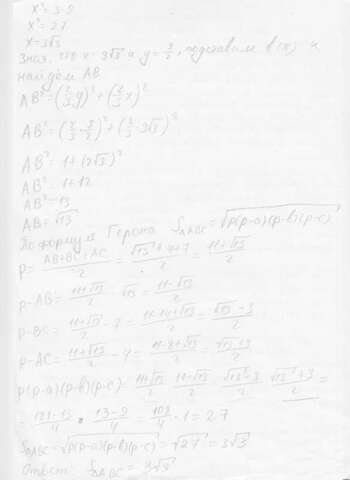 x² = 3·9
x² = 27
x = 3√3
Зная, что x = 3√3 и y = 3/2, подставим в (x) и
найдём AB
AB² = (2/3 y)² + (2/3 x)²
AB² = (2/3 · 3/2)² + (2/3 · 3√3)²
AB² = 1 + (2√3)²
AB² = 1 + 12
AB² = 13
AB = √13
По формуле Герона S△ABC = √p(p-a)(p-b)(p-c)
p = (AB+BC+AC)/2 = (√13+4+7)/2 = (11+√13)/2
p-AB = (11+√13)/2 - √13 = (11-√13)/2
p-BC = (11+√13)/2 - 7 = (11-14+√13)/2 = (√13-3)/2
p-AC = (11+√13)/2 - 4 = (11-8+√13)/2 = (√13+3)/2
p(p-a)(p-b)(p-c) = (11+√13)/2 · (11-√13)/2 · (√13-3)/2 · (√13+3)/2 =
= (121-13)/4 · (13-9)/4 = 108/4 · 1 = 27
S△ABC = √p(p-a)(p-b)(p-c) = √27 = 3√3
Ответ: S△ABC = 3√3